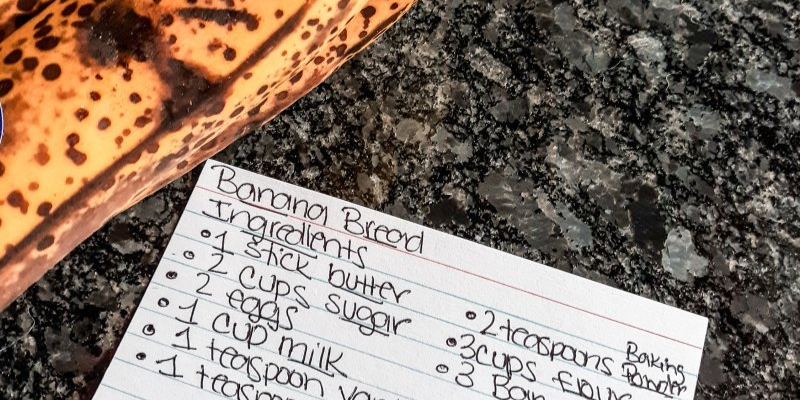 Banana Bread
Ingredients
• 1 stick butter
• 2 cups sugar
• 2 eggs
• 1 cup milk
• 1 teaspoon
• 1
• 2 teaspoons Baking Powder
• 3 cups flour
• 3